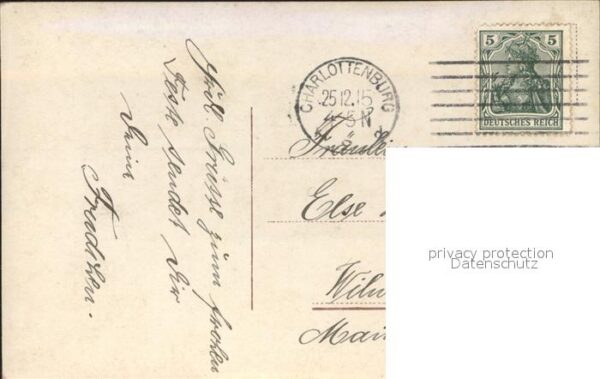 Hrzl. Grüsse zum frohen
Feste sendet Dir
Deine
Friedchen.
CHARLOTTENBURG
25.12.15
5 N
5 5
DEUTSCHES REICH
Fräulei
Else
Wilm
Mai
privacy protection
Datenschutz